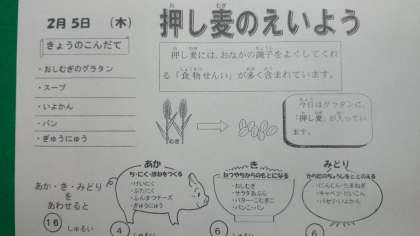 2月5日 (木)
押し麦のえいよう
きょうのこんだて
・おしむぎのグラタン
・スープ
・いよかん
・パン
・ぎゅうにゅう
押し麦には、おなかの調子をよくしてくれ
る「食物せんい」が多く含まれています。
むぎ
今日はグラタンに、
「押し麦」が入ってい
ます。
あか・き・みどり
を
あわせると
16 しゅるい
あか
ち・にく・ほねをつくる
・けいにく
・ぶたにく
・ふんまつチーズ
・ぎゅうにゅう
4 しゅるい
き
ねつやちからのもとになる
・おしむぎ
・サラダあぶら
・バター・こむぎこ
・パンこ・パン
6 しゅるい
みどり
からだのちょうしをととのえる
・にんじん・たまねぎ
・キャベツ・だいこん
・パセリ・いよかん
6 しゅるい